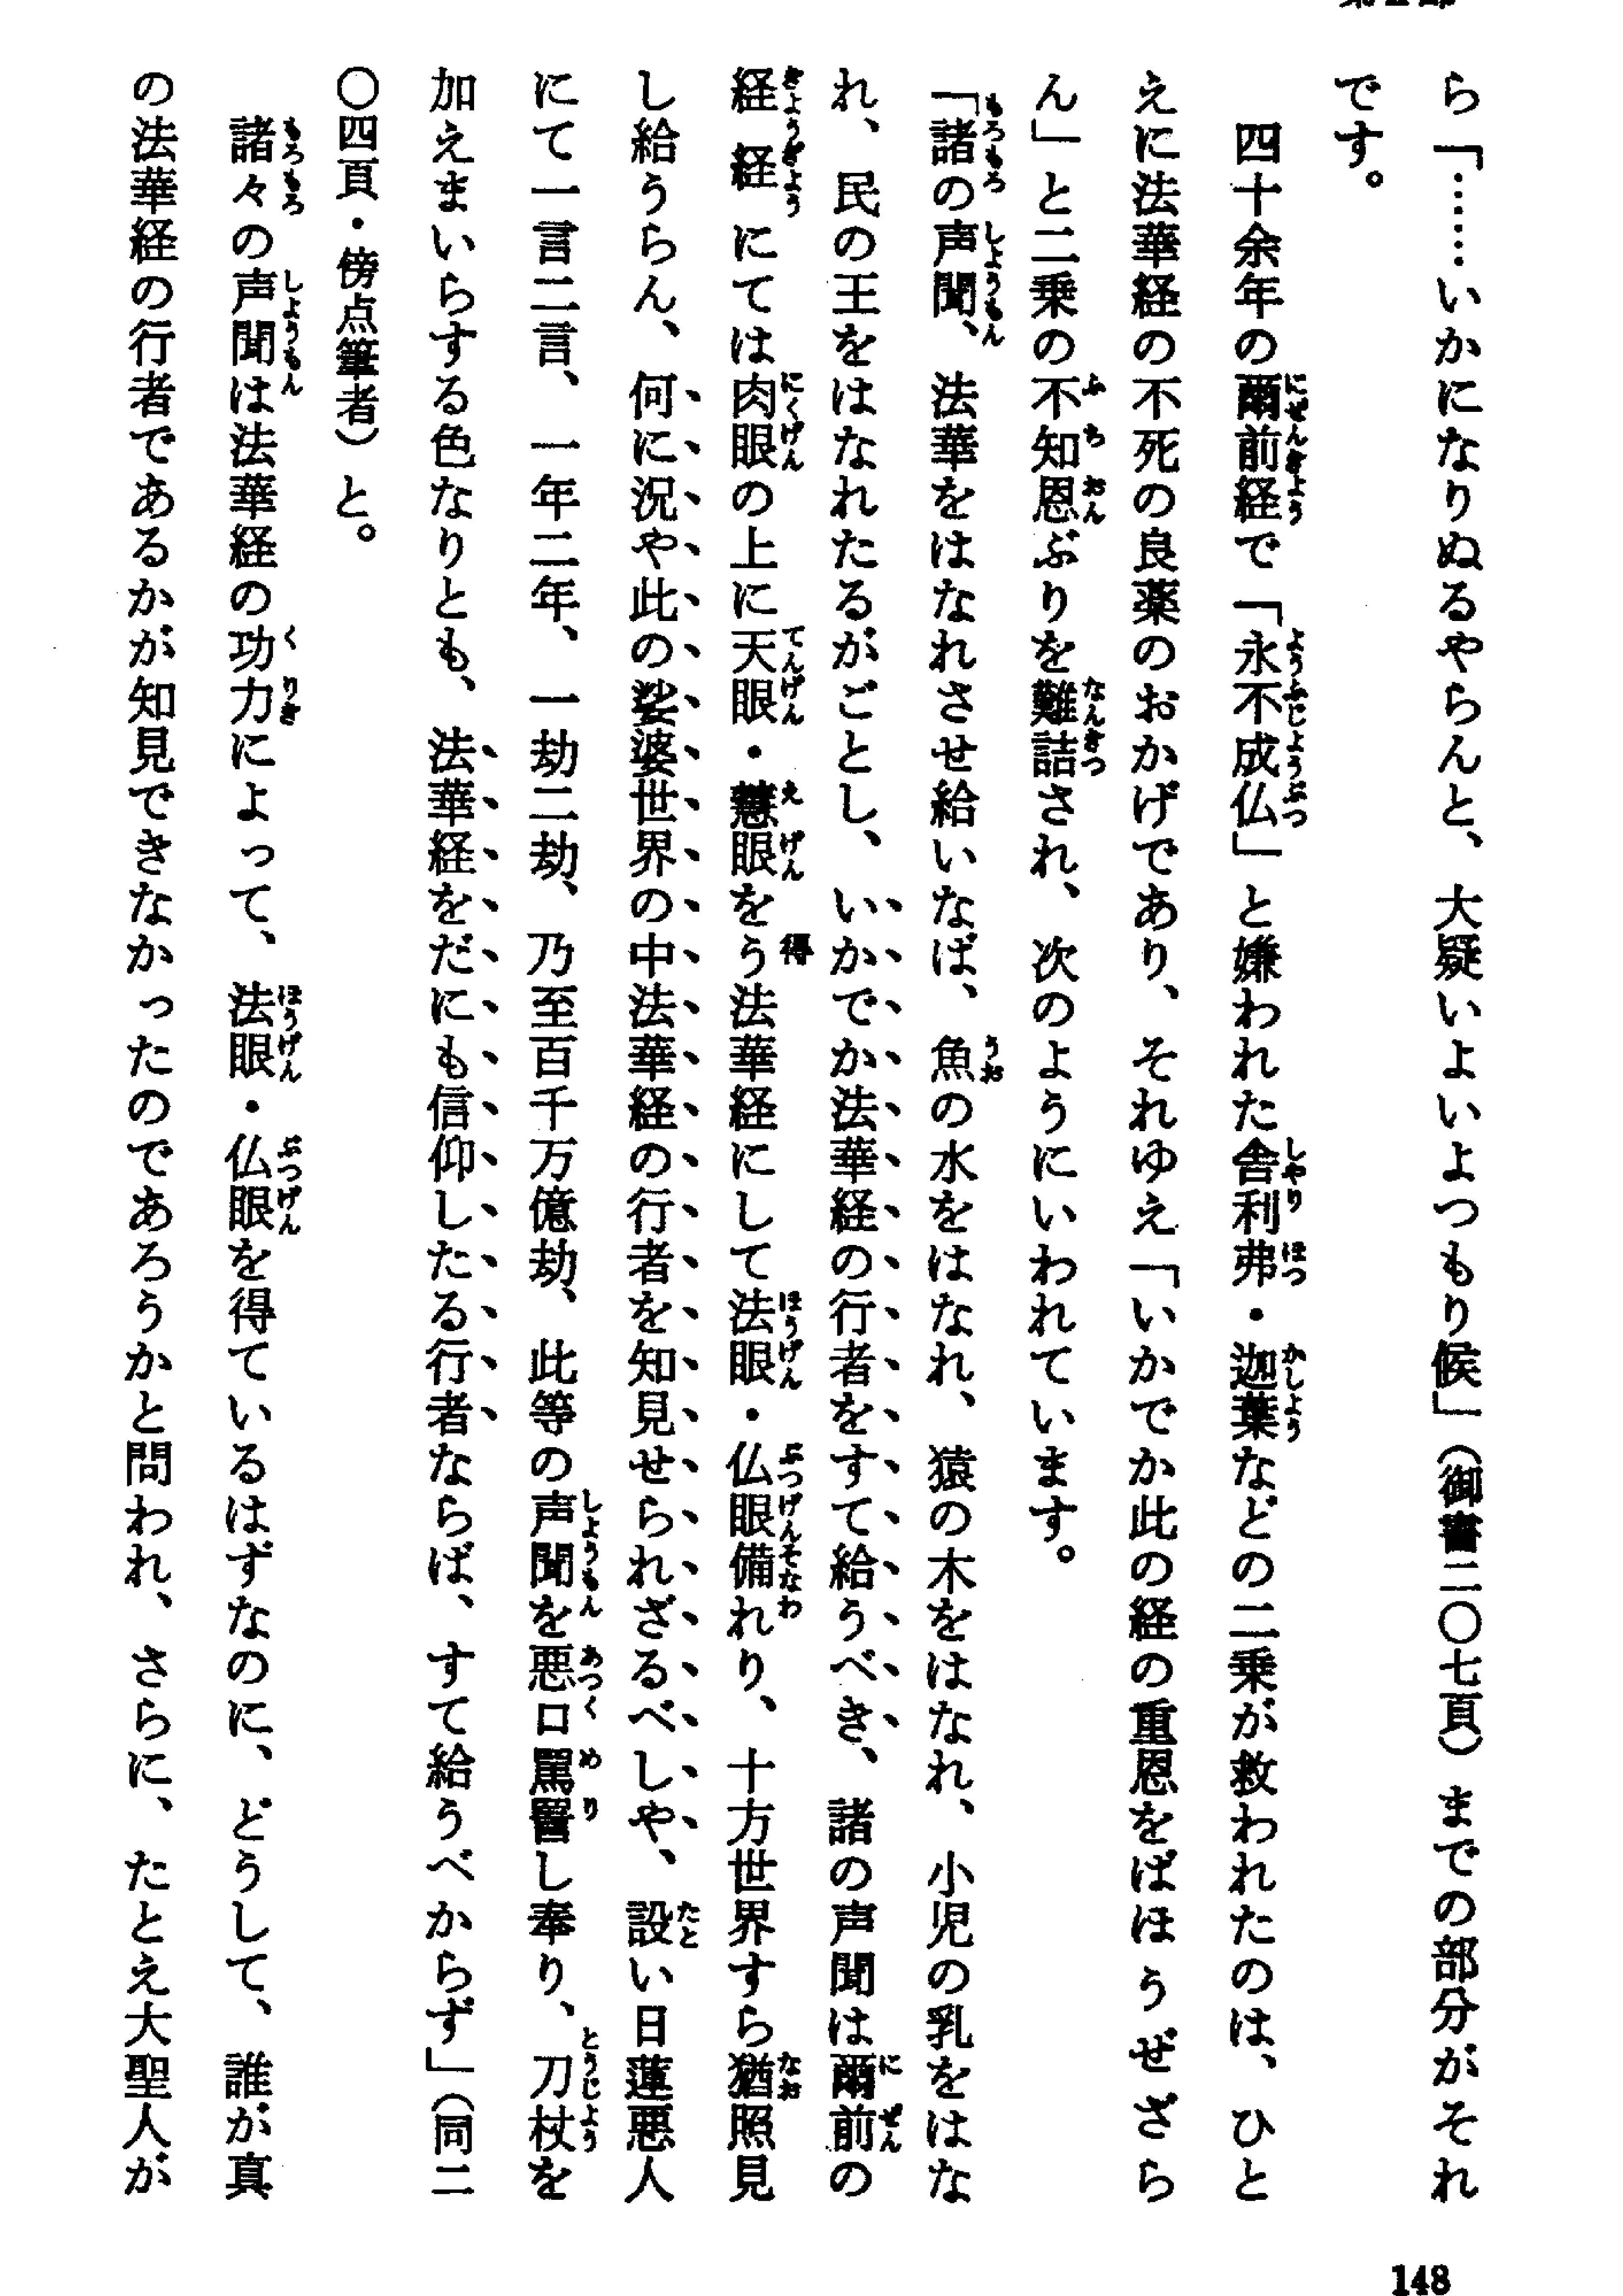 ら「……いかになりぬるやらんと、大疑いよいよつもり候」（御書二〇七頁）までの部分がそれ
です。
四十余年の爾前経で「永不成仏」と嫌われた舎利弗・迦葉などの二乗が救われたのは、ひと
えに法華経の不死の良薬のおかげであり、それゆえ「いかでか此の経の重恩をばほうぜざら
ん」と二乗の不知恩ぶりを難詰され、次のようにいわれています。
「諸の声聞、法華をはなれさせ給いなば、魚の水をはなれ、猿の木をはなれ、小児の乳をはな
れ、民の王をはなれたるがごとし、いかでか法華経の行者をすて給うべき、諸の声聞は爾前の
経経にては肉眼の上に天眼・慧眼をう法華経にして法眼・仏眼備れり、十方世界すら猶照見
し給うらん、何に況や此の娑婆世界の中法華経の行者を知見せられざるべしや、設い日蓮悪人
にて一言二言、一年二年、一劫二劫、乃至百千万億劫、此等の声聞を悪口罵詈し奉り、刀杖を
加えまいらする色なりとも、法華経をだにも信仰したる行者ならば、すて給うべからず」（同二
〇四頁・傍点筆者）と。
諸々の声聞は法華経の功力によって、法眼・仏眼を得ているはずなのに、どうして、誰が真
の法華経の行者であるかが知見できなかったのであろうかと問われ、さらに、たとえ大聖人が
148